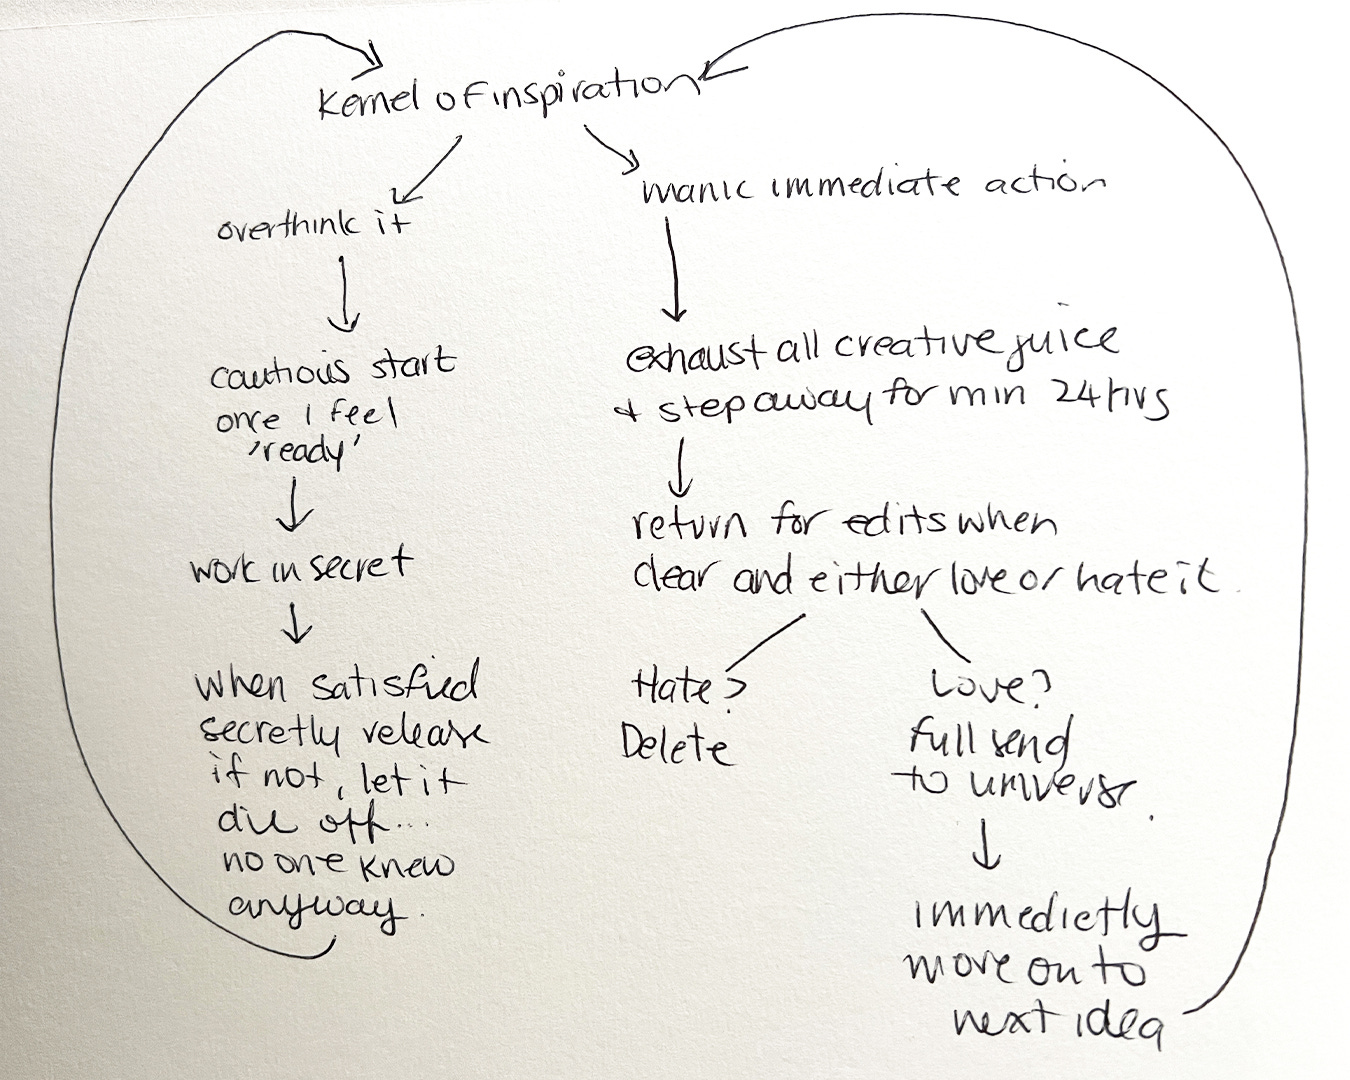 Kernel of inspiration
overthink it
cautious start
once I feel
'ready'
work in secret
when satisfied
secretly release
if not, let it
die off...
no one knew
anyway.
manic immediate action
exhaust all creative juice
& step away for min 24 hrs
return for edits when
clear and either love or hate it.
Hate?
Delete
Love?
full send
to universe.
immedietly
move on to
next idea